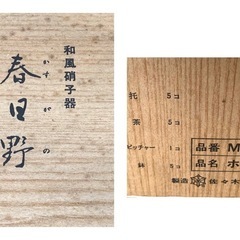 和風硝子器
春日野
かすがの
托 5コ
茶 5コ
ピッチャー 1コ
鉢 5コ
品番 M
品名 ホ
製造 佐々木